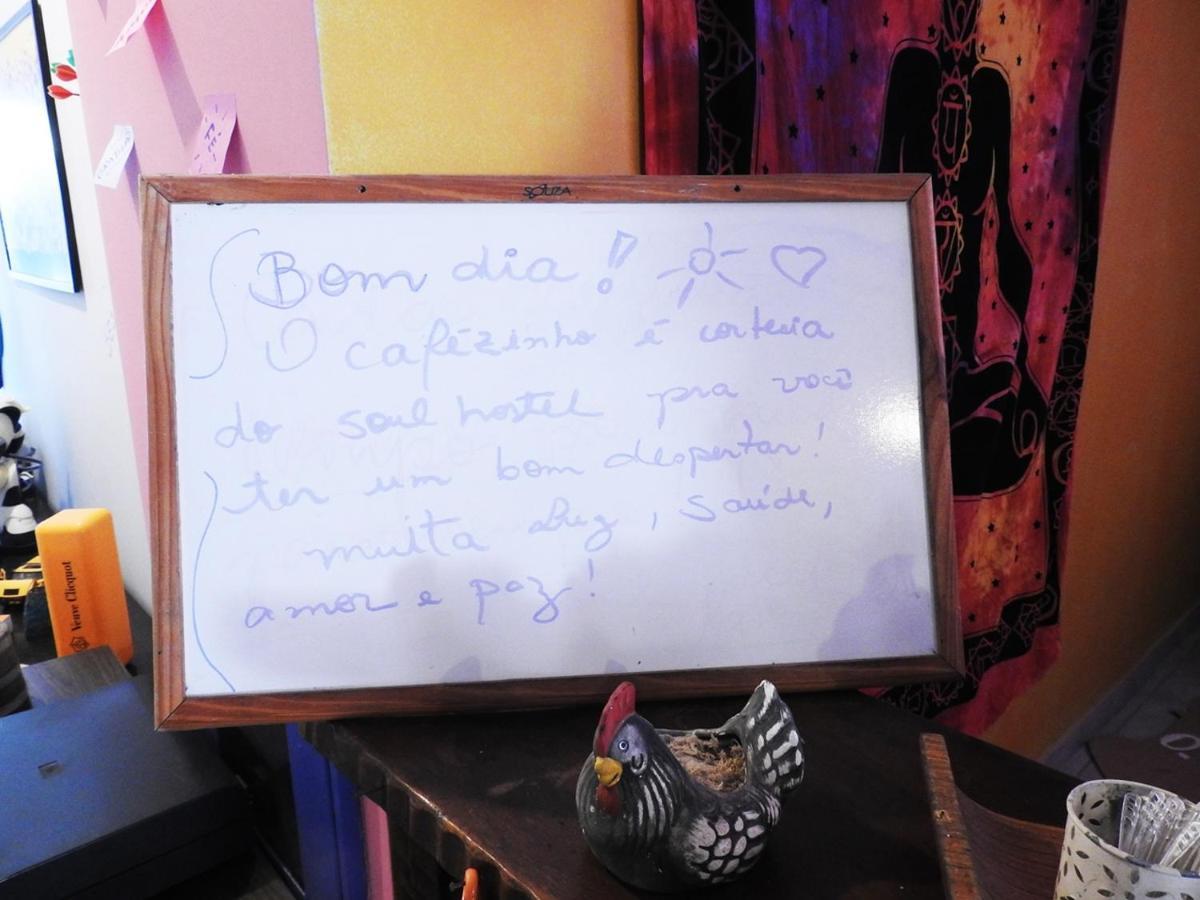 SOUZA
Bom dia!
O cafézinho é cortesia
do soul hostel pra você
ter um bom despertar!
muita Luz, saúde,
amor e paz!
Veuve Clicquot